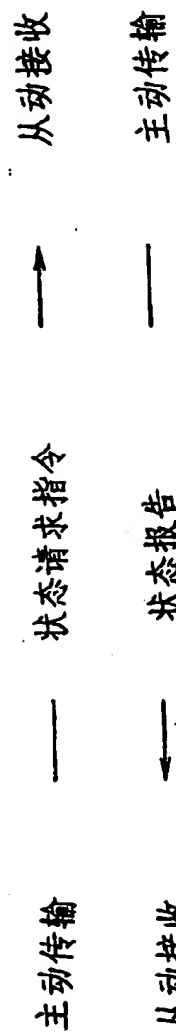 主动传输 — 状态请求指令 → 从动接收
从动接收 ← 状态报告 — 主动传输